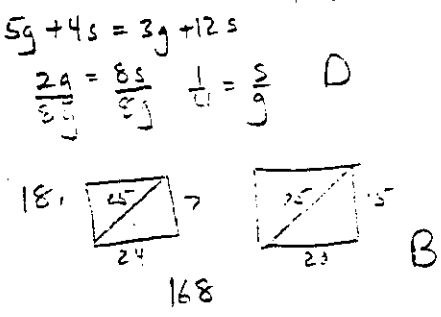 5g + 4s = 3g + 12s
2g/8g = 8s/8g 1/4 = s/g D
18. 25 7 24 25 15 B
168